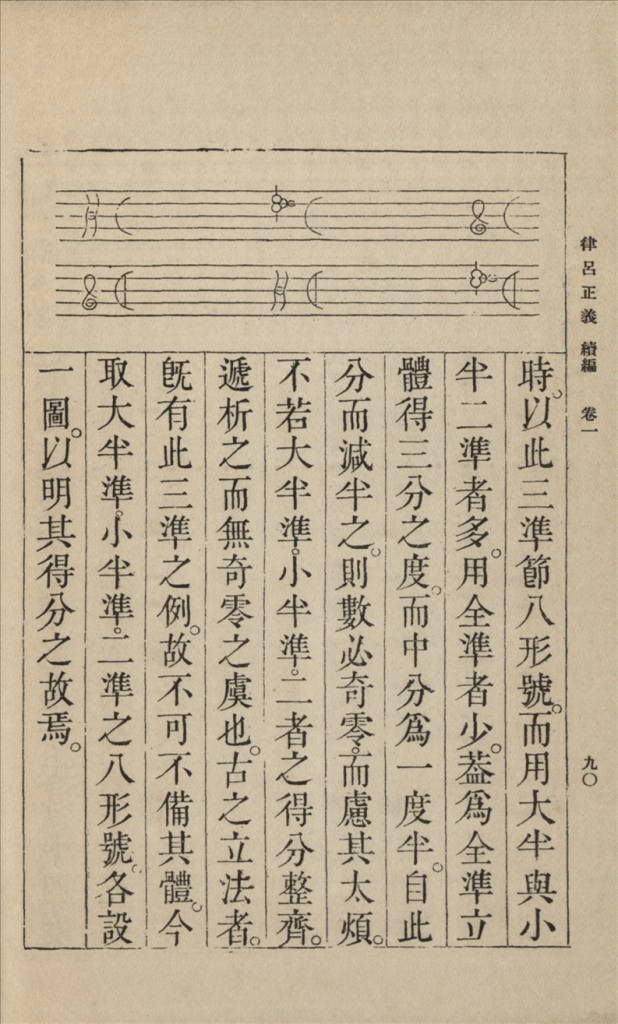 律呂正義 續編 卷一
九〇
時。以此三準節八形號。而用大半與小
半二準者多。用全準者少。葢爲全準立
體得三分之度。而中分爲一度半。自此
分而減半之。則數必奇零。而慮其太煩。
不若大半準。小半準。二者之得分整齊。
遞析之而無奇零之虞也。古之立法者。
旣有此三準之例。故不可不備其體。今
取大半準。小半準。二準之八形號。各設
一圖。以明其得分之故焉。